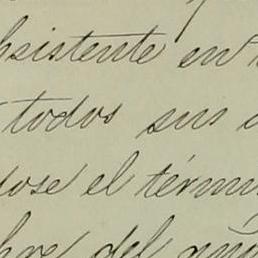 bsistente en
todos sus
dose el térmi
bre del